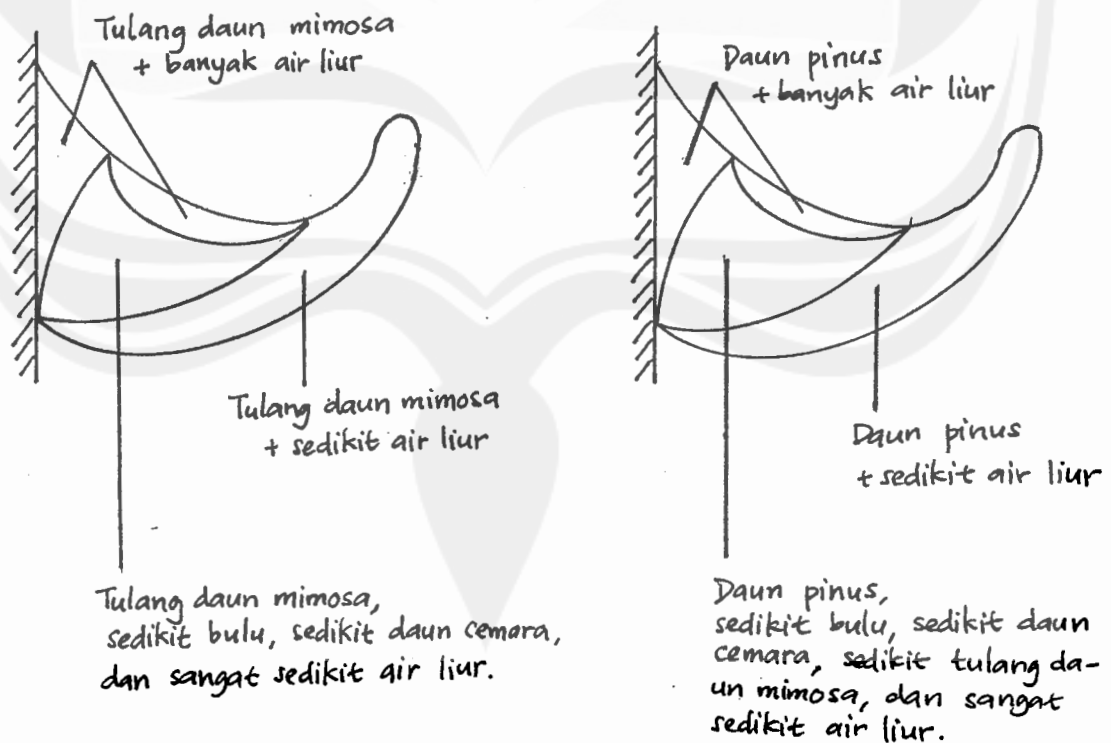 Tulang daun mimosa
+ banyak air liur
Tulang daun mimosa
+ sedikit air liur
Tulang daun mimosa,
sedikit bulu, sedikit daun cemara,
dan sangat sedikit air liur.
Daun pinus
+ banyak air liur
Daun pinus
+ sedikit air liur
Daun pinus,
sedikit bulu, sedikit daun
cemara, sedikit tulang da-
un mimosa, dan sangat
sedikit air liur.